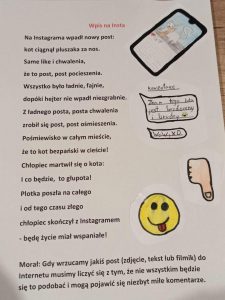 Wpis na Insta
Na Instagrama wpadł nowy post:
kot ciągnął pluszaka za nos.
Same like i chwalenia,
że to post, post pocieszenia.
Wszystko było ładnie, fajnie,
dopóki hejter nie wpadł niezgrabnie.
Z ładnego posta, posta chwalenia
zrobił się post, post ośmieszenia.
Pośmiewisko w całym mieście,
że to kot bezpański w cieście!
Chłopiec martwił się o kota:
I co będzie, to głupota!
Plotka poszła na całego
i od tego czasu złego
chłopiec skończył z Instagramem
- będę życie miał wspaniałe!
Komentarze:
kot
XD
Morał: Gdy wrzucamy jakiś post (zdjęcie, tekst lub filmik) do
Internetu musimy liczyć się z tym, że nie wszystkim będzie
się to podobać i mogą pojawić się niezbyt miłe komentarze.